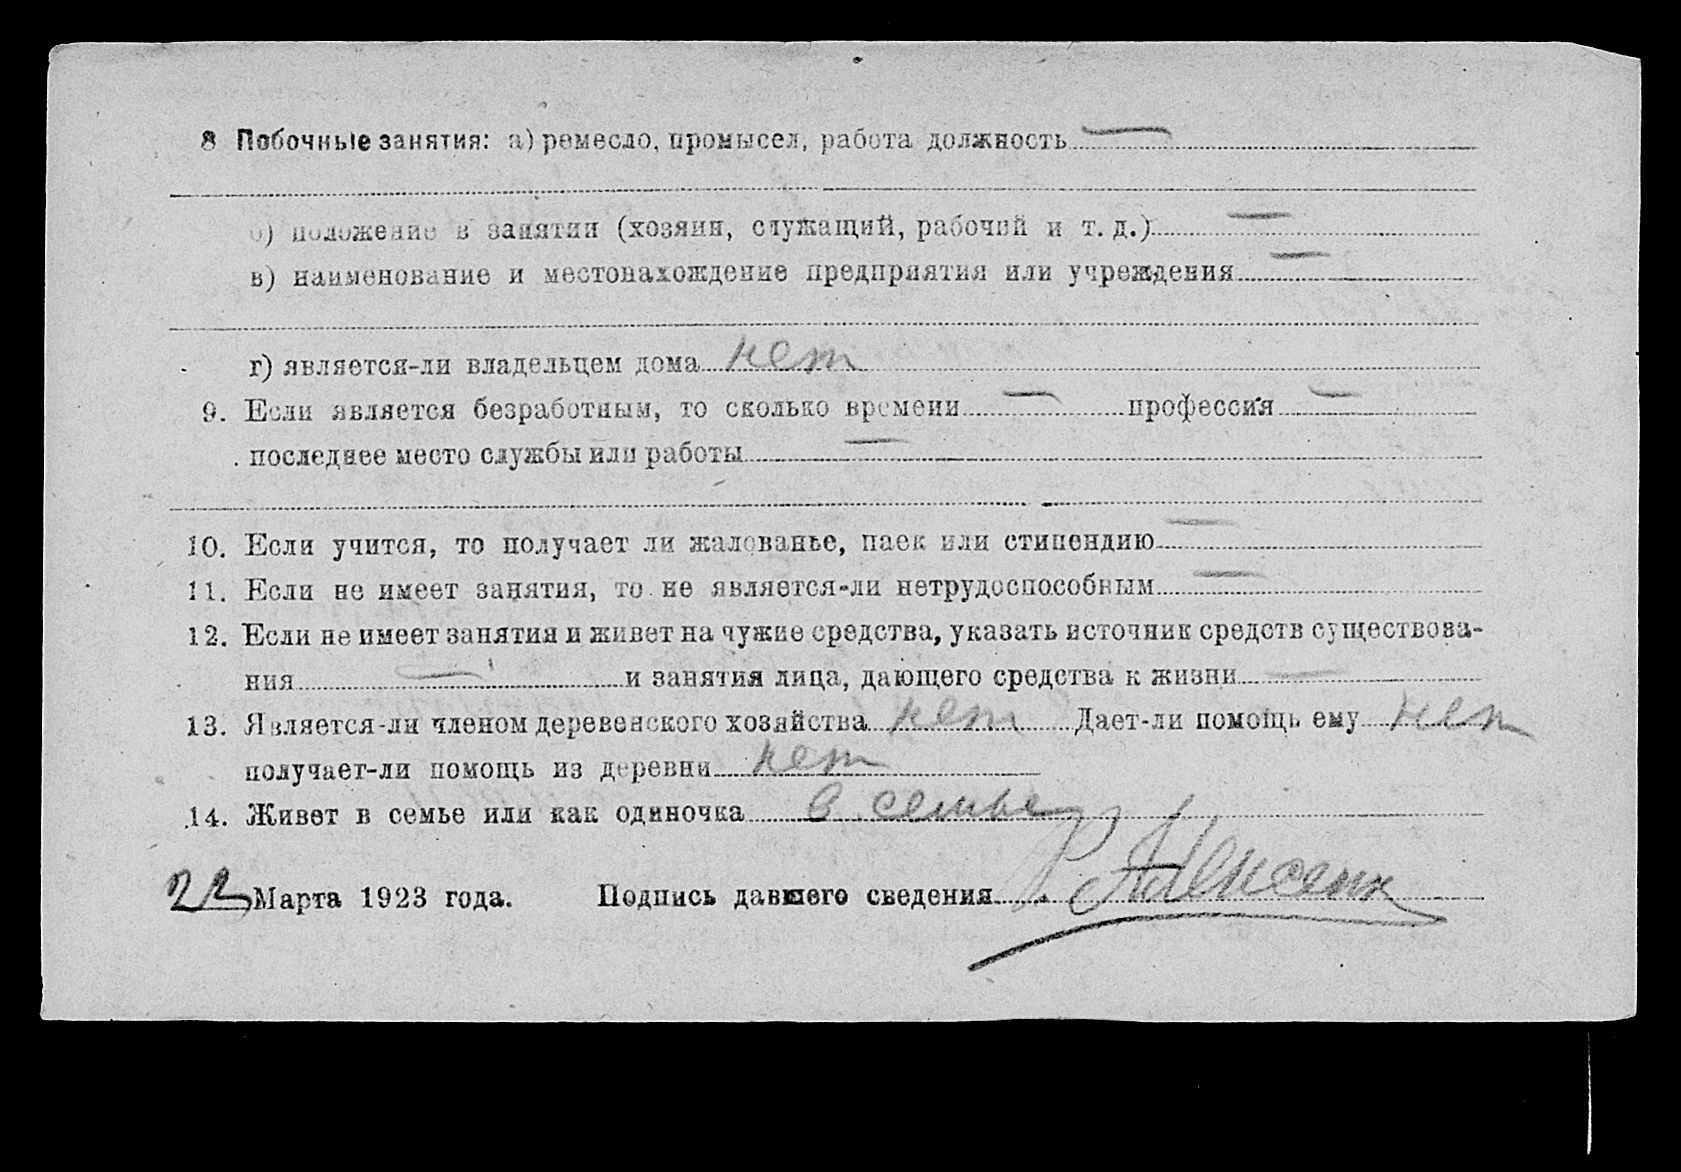 8 Побочные занятия: а) ремесло, промысел, работа должность —
б) положение в занятии (хозяин, служащий, рабочий и т. д.) —
в) наименование и местонахождение предприятия или учреждения —
г) является-ли владельцем дома нет
9. Если является безработным, то сколько времени — профессия —
последнее место службы или работы —
10. Если учится, то получает ли жалованье, паек или стипендию —
11. Если не имеет занятия, то не является-ли нетрудоспособным —
12. Если не имеет занятия и живет на чужие средства, указать источник средств существова-
ния — и занятия лица, дающего средства к жизни —
13. Является-ли членом деревенского хозяйства нет Дает-ли помощь ему нет
получает-ли помощь из деревни нет
14. Живет в семье или как одиночка в семье
22 Марта 1923 года. Подпись давшего сведения